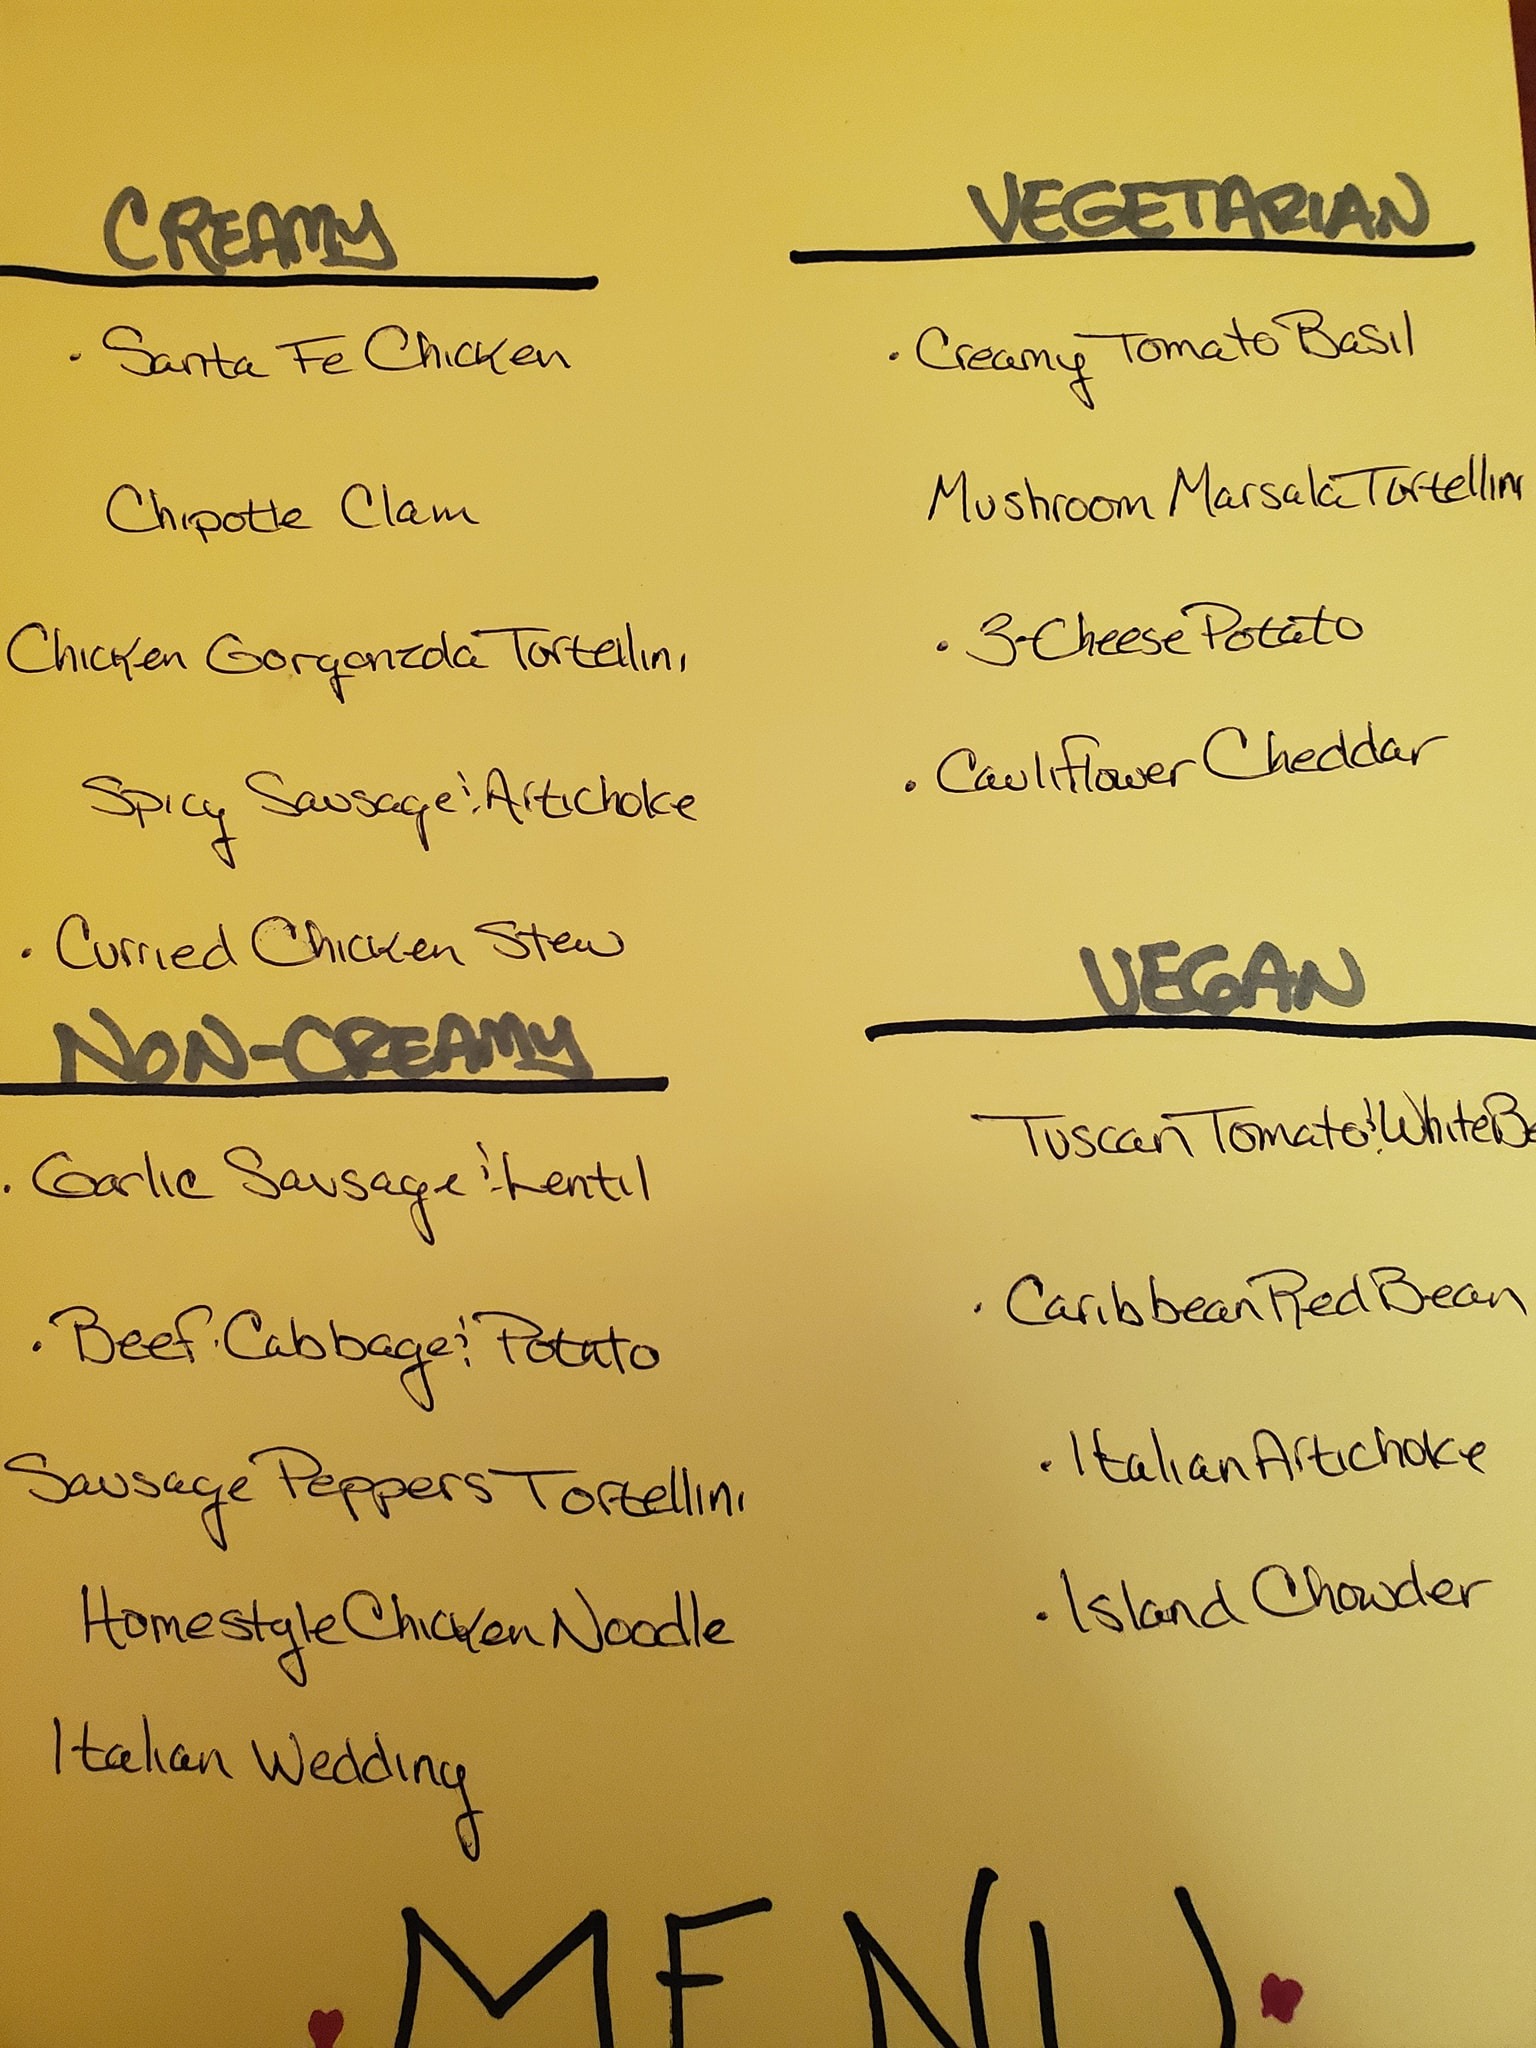 CREAMY
· Santa Fe Chicken
Chipotle Clam
Chicken Gorgonzola Tortellini
Spicy Sausage & Artichoke
· Curried Chicken Stew
NON-CREAMY
· Garlic Sausage & Lentil
· Beef· Cabbage & Potato
Sausage Peppers Tortellini
Homestyle Chicken Noodle
Italian Wedding
VEGETARIAN
· Creamy Tomato Basil
Mushroom Marsala Tortellini
· 3-Cheese Potato
· Cauliflower Cheddar
VEGAN
Tuscan Tomato & White Be
· Caribbean Red Bean
· Italian Artichoke
· Island Chowder
MENU